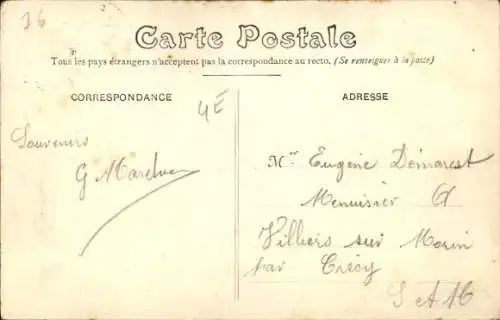 36
Carte Postale
Tous les pays étrangers n'acceptent pas la correspondance au recto. (Se renseigner à la poste)
CORRESPONDANCE
4E
Souvenirs
G
ADRESSE
Mr Eugène Démarest
Menuisier
Villiers sur Morin
par Crécy
S et M